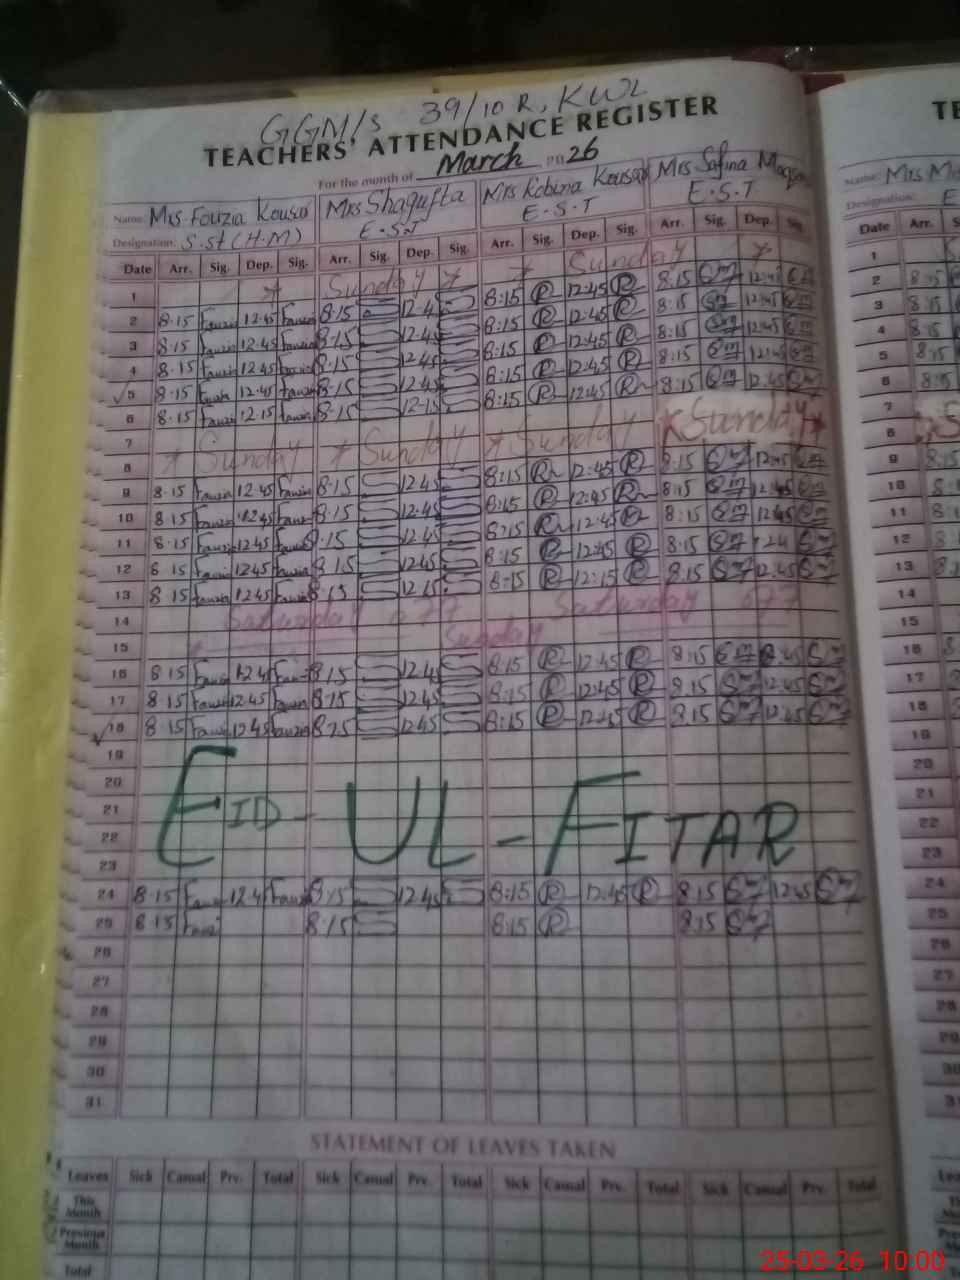 GGM/s 39/10 R, KWL
TEACHERS' ATTENDANCE REGISTER
For the month of March 2026
Name: Mrs. Fouzia Kousar Mrs Shagufta Mrs Robina Kousar Mrs Safina Maqsoo
Designation: S.St (H.M) E.S.T E.S.T E.S.T
Date Arr. Sig. Dep. Sig. Arr. Sig. Dep. Sig. Arr. Sig. Dep. Sig. Arr. Sig. Dep. Sig.
1 * Sunday * * Sunday *
2 8.15 Fauzia 12.45 Fauzia 8.15 12.45 8:15 R 12:45 R 8.15 12:45
3 8.15 Fauzia 12.45 Fauzia 8.15 12.45 8:15 R 12:45 R 8:15 12:45
4 8.15 Fauzia 12.45 Fauzia 8.15 12.45 8:15 R 12:45 R 8:15 12:45
5 8.15 Fauzia 12.45 Fauzia 8.15 12.45 8:15 R 12:45 R 8:15 12:45
6 8.15 Fauzia 12.15 Fauzia 8.15 12.15 8:15 R 12:45 R 8:15 12.45
7
8 * Sunday * Sunday * Sunday * Sunday *
9 8.15 Fauzia 12.45 Fauzia 8.15 12.45 8:15 R 12:45 R 8:15 12:45
10 8.15 Fauzia 12.45 Fauzia 8.15 12.45 8:15 R 12:45 R 8:15 12:45
11 8.15 Fauzia 12.45 Fauzia 8.15 12.45 8:15 R 12:45 R 8:15 12.45
12 8.15 Fauzia 12.45 Fauzia 8.15 12.45 8:15 R 12:45 R 8:15
13 8.15 Fauzia 12.45 Fauzia 8.15 12.15 8:15 R 12:15 R 8.15 12.45
14 Saturday Saturday
15 Sunday
16 8.15 Fauzia 12.45 Fauzia 8.15 12.45 8:15 R 12:45 R 8:15
17 8.15 Fauzia 12.45 Fauzia 8.15 12.45 8:15 R 12:45 R 8.15 12.45
18 8.15 Fauzia 12.45 Fauzia 8.15 12.45 8:15 R 12:45 R 8.15 12.45
19
20
21 EID - UL - FITAR
22
23
24 8.15 Fauzia 12.45 Fauzia 8.15 12.45 8:15 R 12:45 R 8.15 12.45
25 8.15 Fauzi 8.15 8:15 R 8.15
26
27
28
29
30
31
STATEMENT OF LEAVES TAKEN
Leaves Sick Casual Prv. Total Sick Casual Prv. Total Sick Casual Prv. Total Sick Casual Prv. Total
This Month
Previous Month
Total
25-03-26 10:00